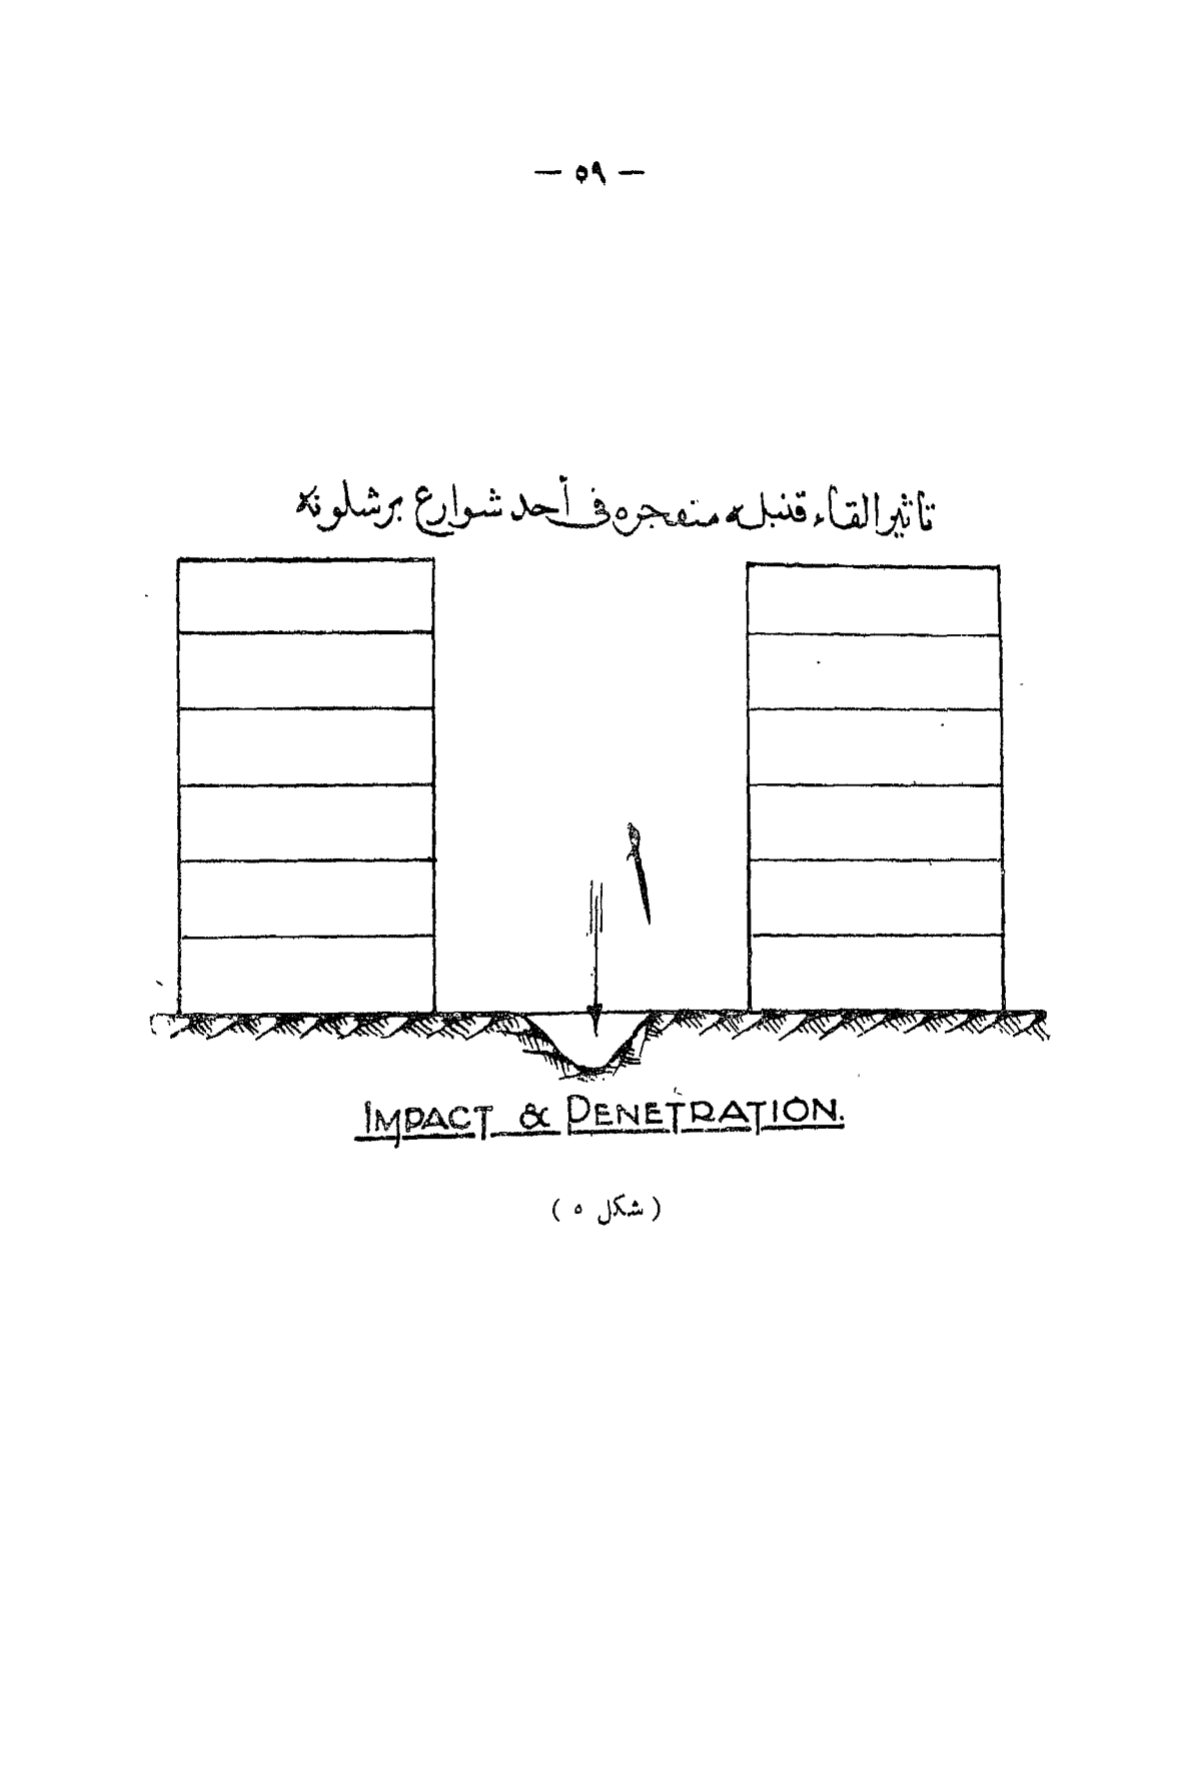 — ٥٩ —
تاثير القاء قنبله منفجره فى أحد شوارع برشلونه
IMPACT & PENETRATION.
( شكل ٥ )